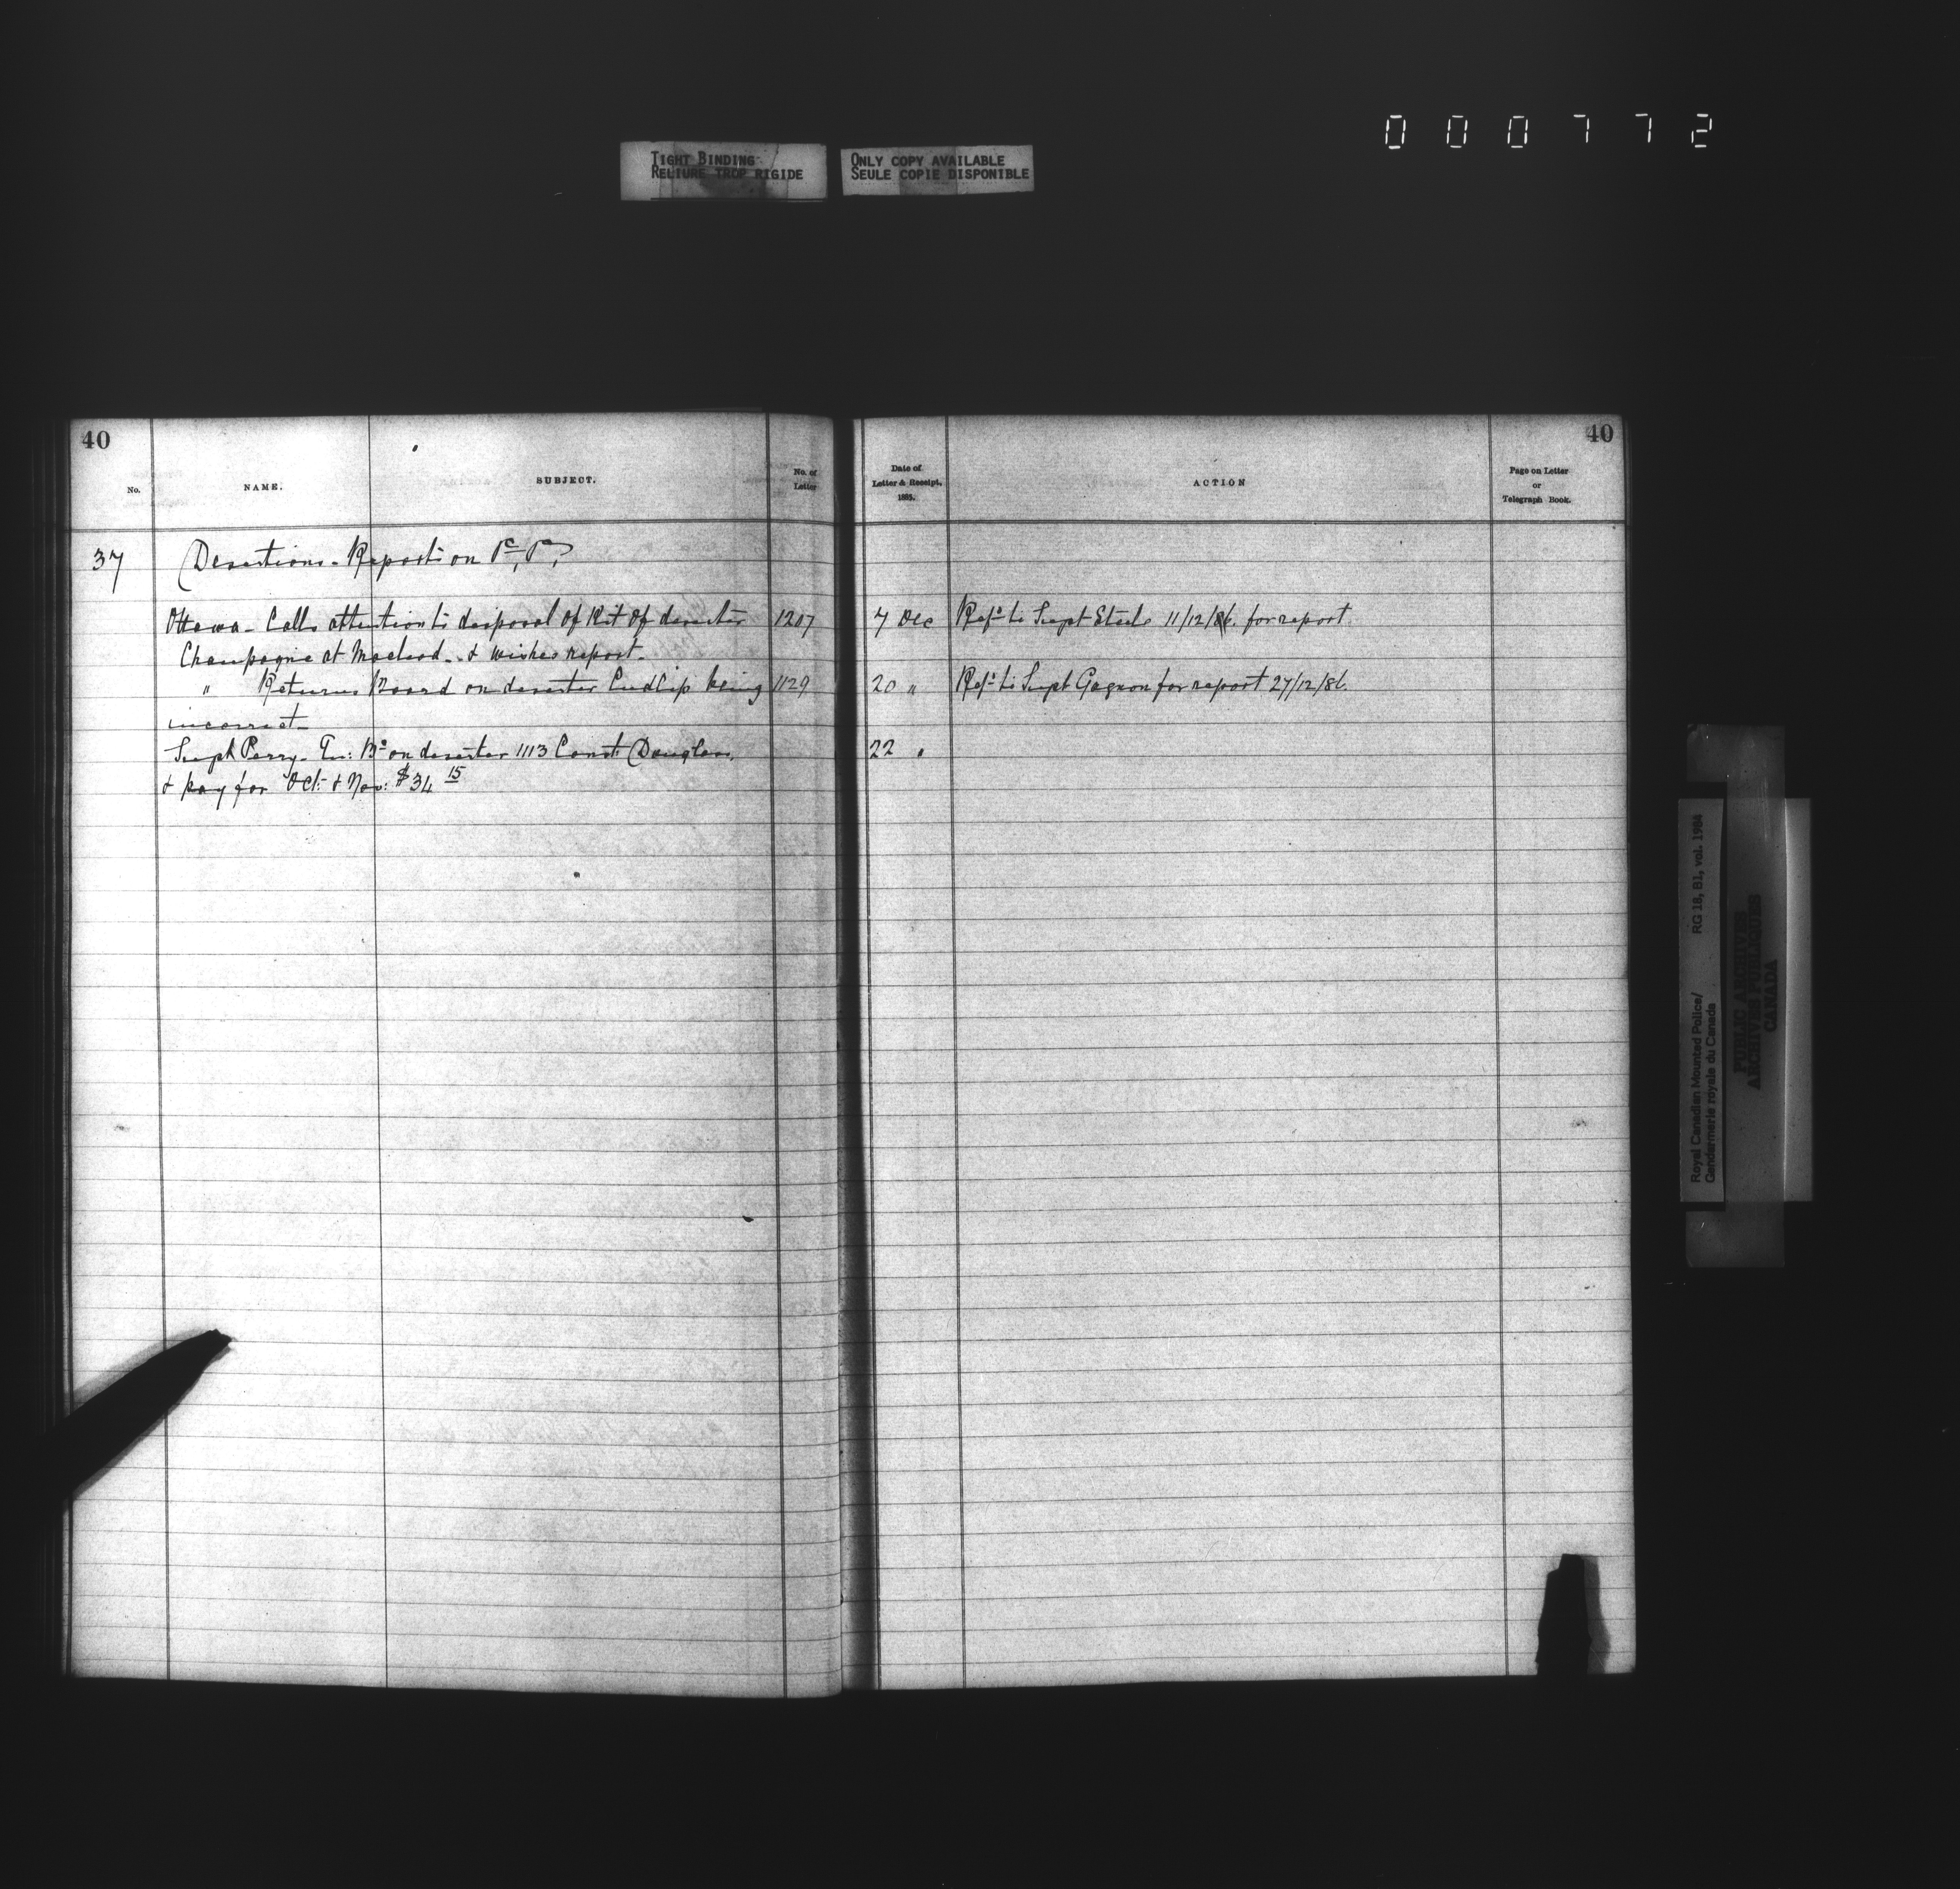 000772
TIGHT BINDING
RELIURE TROP RIGIDE
ONLY COPY AVAILABLE
SEULE COPIE DISPONIBLE
40
40
No.
NAME.
SUBJECT.
No. of
Letter
Date of
Letter & Receipt,
1885.
ACTION
Page on Letter
or
Telegraph Book.
37 Desertions - Reports on
Ottawa - Calls attention to disposal of Kit of deserter 1207 7 Dec Ref'd to Supt Steele 11/12/86. for report
Champagne at Macleod - & wishes report.
" Returns Board on deserter Cudlip being 1129 20 " Ref'd to Supt Gagnon for report 27/12/86.
incorrect -
Supt Perry - En: Bd on deserter 1113 Const: Douglas, 22 "
& pay for Oct: & Nov: $34 15
Royal Canadian Mounted Police/ RG 18, B1, vol. 1984
Gendarmerie royale du Canada
PUBLIC ARCHIVES
ARCHIVES PUBLIQUES
CANADA